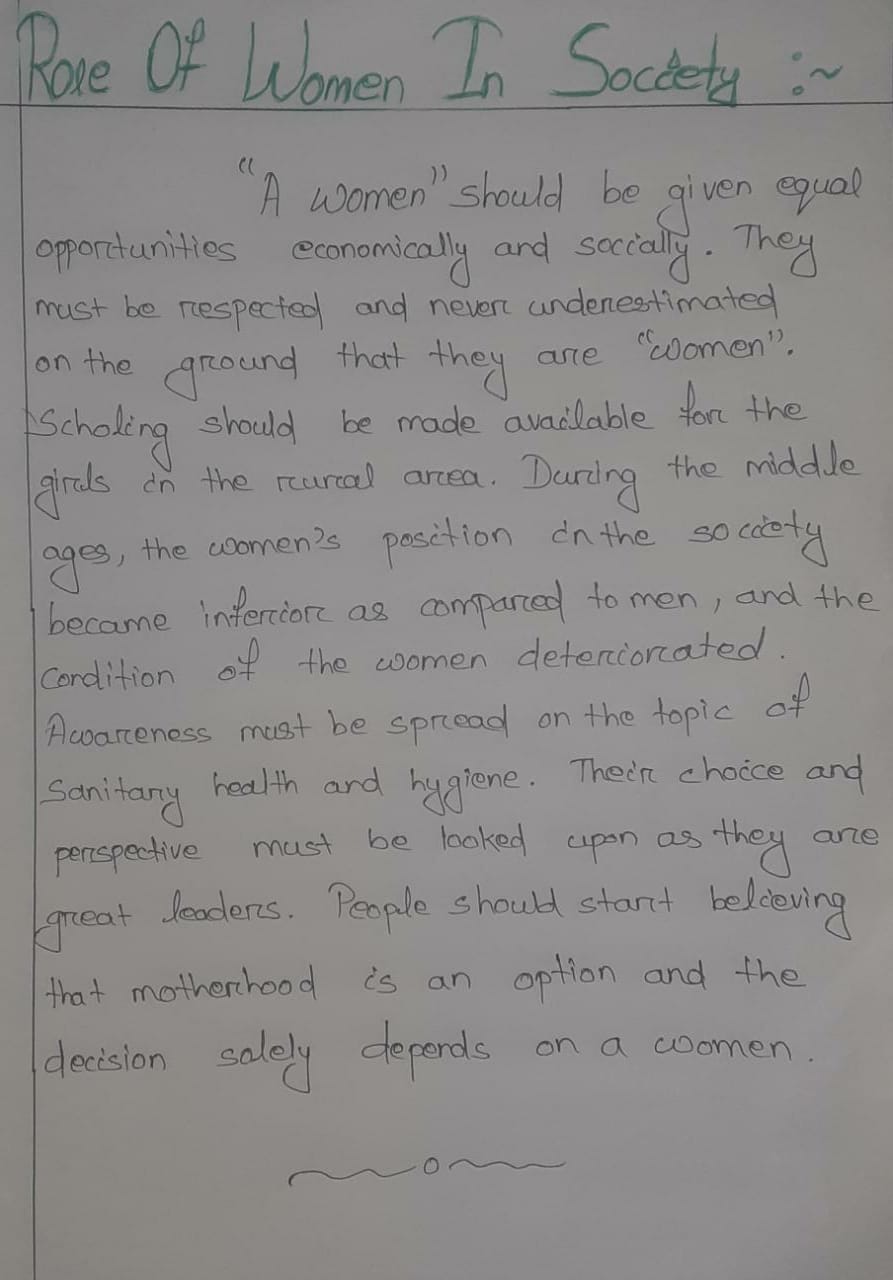 Role Of Women In Society :~
"A women" should be given equal
opportunities economically and socially. They
must be respected and never underestimated
on the ground that they are "women".
Scholing should be made available for the
girls in the rural area. During the middle
ages, the women's position in the society
became inferior as compared to men, and the
condition of the women deteriorated.
Awareness must be spread on the topic of
Sanitary health and hygiene. Their choice and
perspective must be looked upon as they are
great leaders. People should start believing
that motherhood is an option and the
decision solely depends on a women.